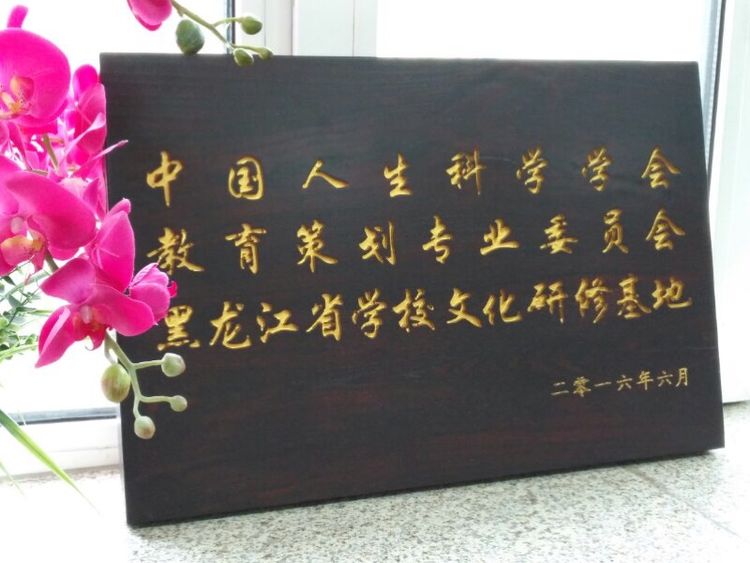 中国人生科学学会
教育策划专业委员会
黑龙江省学校文化研修基地
二零一六年六月